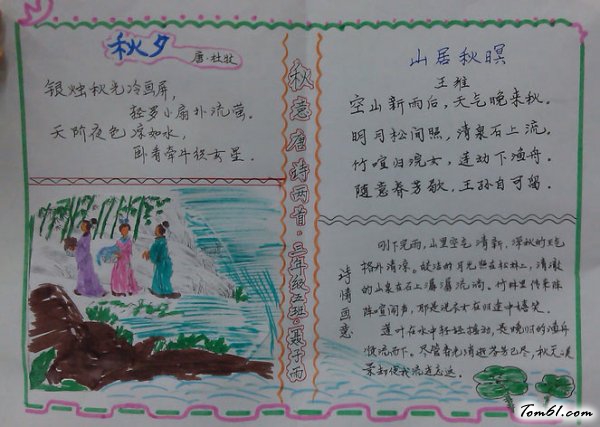 秋夕
唐·杜牧
银烛秋光冷画屏,
轻罗小扇扑流萤。
天阶夜色凉如水,
卧看牵牛织女星。
秋意唐诗两首·三年级二班·聂子雨
山居秋暝
王维
空山新雨后,天气晚来秋。
明月松间照,清泉石上流。
竹喧归浣女,莲动下渔舟。
随意春芳歇,王孙自可留。
诗情画意
刚下完雨,山里空气清新,深秋的天色
格外清凉。皎洁的月光照在松林上,清澈
的山泉在石上潺潺流淌。竹林里传来阵
阵喧闹声,那是洗衣女在归途中嬉笑。
莲叶在水中轻轻摇动,是晚归的渔舟
顺流而下。尽管春光清逝芳芳已尽,秋天
景却使我流连忘返。
Tom61.com